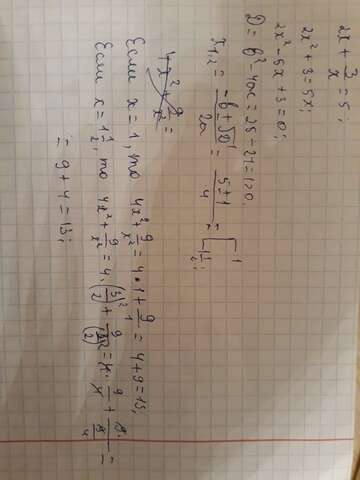 2x + 3/x = 5;
2x² + 3 = 5x;
2x² - 5x + 3 = 0;
D = b² - 4ac = 25 - 24 = 1 > 0.
x₁,₂ = (-b ± √D)/2a = (5 ± 1)/4 = [1
1 1/2;
4x² + 9/x² =
Если x = 1, то 4x² + 9/x² = 4 · 1 + 9/1 = 4 + 9 = 13;
Если x = 1 1/2, то 4x² + 9/x² = 4 · (3/2)² + 9/(3/2)² = 4 · 9/4 + 9/(9/4) =
= 9 + 4 = 13;